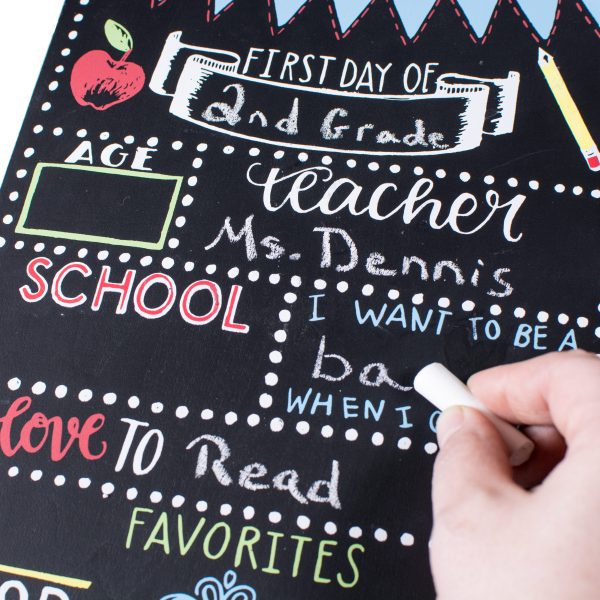 FIRST DAY OF
2nd Grade
AGE
teacher
Ms. Dennis
SCHOOL
I WANT TO BE A
ba
WHEN I
love TO Read
FAVORITES